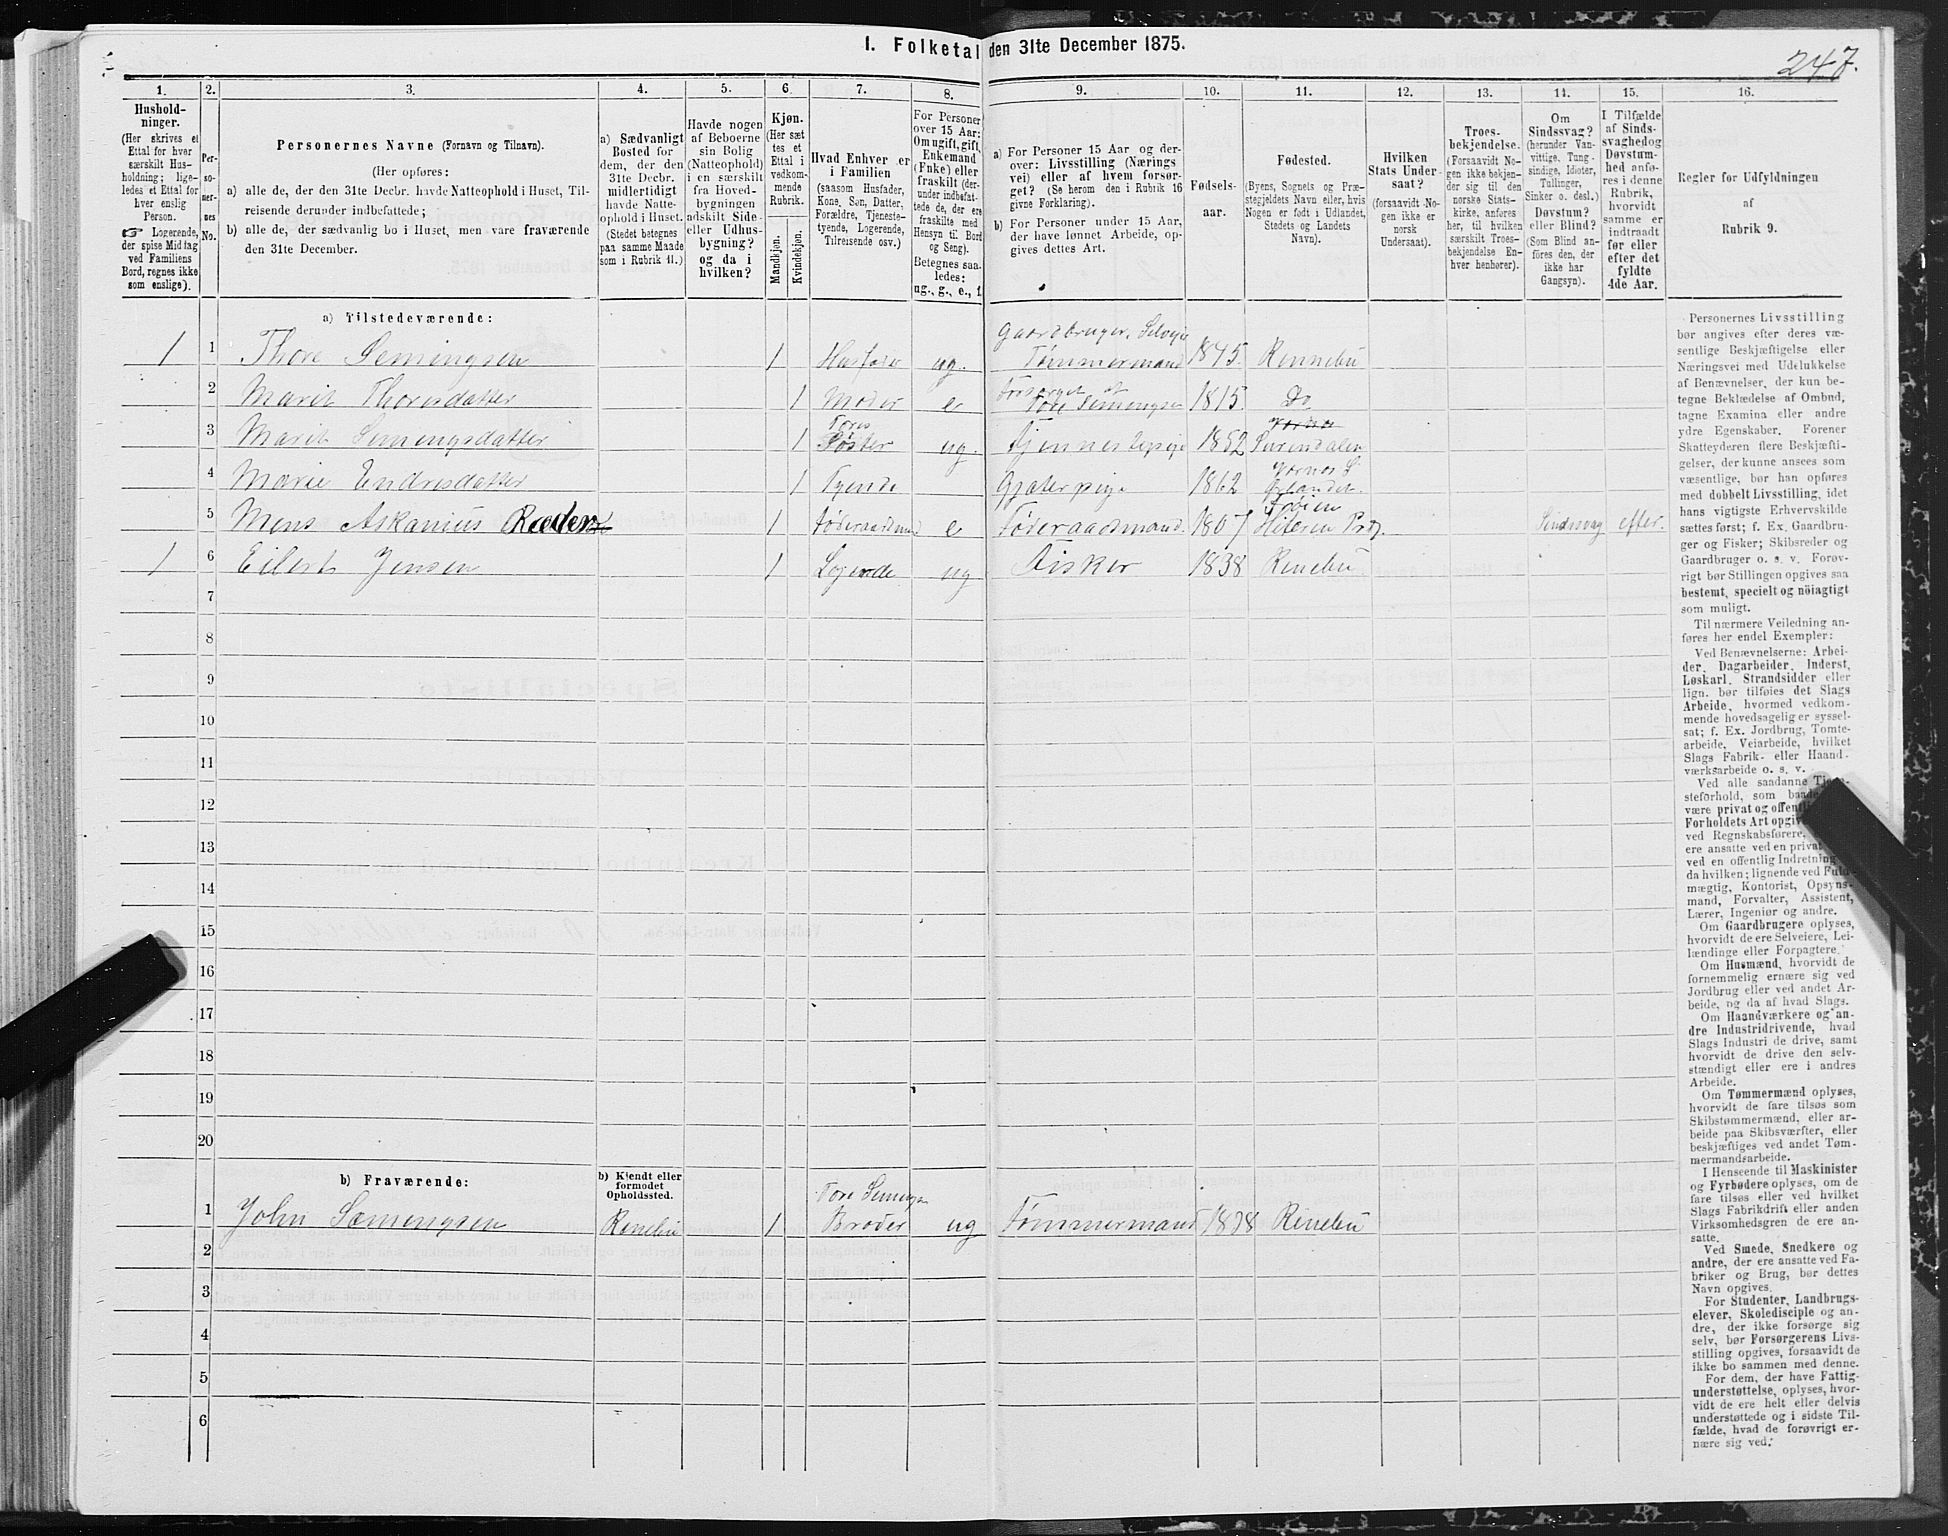 I. Folketal den 31te December 1875.
247.
1. 2. 3. 4. 5. 6. 7. 8. 9. 10. 11. 12. 13. 14. 15. 16.
Hushold-
ninger.
(Her skrives et
Ettal for hver
særskilt Hus-
holdning; lige-
ledes et Ettal for
hver enslig
Person.
☞ Logerende,
der spise Middag
ved Familiens
Bord, regnes ikke
som enslige).
Per-
so-
ner-
nes
No.
Personernes Navne (Fornavn og Tilnavn).
(Her opføres:
a) alle de, der den 31te Decbr. havde Natteophold i Huset, Til-
reisende derunder indbefattede;
b) alle de, der sædvanlig bo i Huset, men vare fraværende
den 31te December.
a) Sædvanligt
Bosted for
dem, der den
31te Decbr.
midlertidigt
havde Natte-
ophold i Huset.
(Stedet betegnes
paa samme Maade
som i Rubrik 11.)
Havde nogen
af Beboerne
sin Bolig
(Natteophold)
i en særskilt
fra Hoved-
bygningen
adskilt Side-
eller Udhus-
bygning?
og da i
hvilken?
Kjøn.
(Her sæt
tes et
Ettal i
vedkom-
mende
Rubrik.
Mandkjøn.
Kvindekjøn.
Hvad Enhver er
i Familien
(saasom Husfader,
Kone, Søn, Datter,
Forældre, Tjeneste-
tyende, Logerende,
Tilreisende osv.)
For Personer
over 15 Aar:
Om ugift, gift,
Enkemand
(Enke) eller
fraskilt (der-
under indbefat-
tede de, der ere
fraskilte med
Hensyn til Bord
og Seng).
Betegnes saa-
ledes:
ug., g., e., f.
a) For Personer 15 Aar og der-
over: Livsstilling (Nærings
vei) eller af hvem forsør-
get? (Se herom den i Rubrik 16
givne Forklaring).
b) For Personer under 15 Aar,
der have lønnet Arbeide, op-
gives dettes Art.
Fødsels-
aar.
Fødested.
(Byens, Sognets og Præ-
stegjeldets Navn eller, hvis
Nogen er født i Udlandet,
Stedets og Landets
Navn).
Hvilken
Stats Under-
saat?
(forsaavidt No-
gen ikke er
norsk
Undersaat).
Troes-
bekjendelse.
(Forsaavidt No-
gen ikke bekjen-
der sig til den
norske Stats-
kirke, anføres
her, til hvilken
særskilt Troes-
bekjendelse En-
hver henhører).
Om
Sindssvag?
(herunder Van-
vittige, Tung-
sindige, Idioter,
Tullinger,
Sinker o. desl.)
Døvstum?
eller Blind?
(Som Blind an-
føres den, der
ikke har
Gangsyn).
I Tilfælde
af Sinds-
svaghed og
Døvstum-
hed anfø-
res i denne
Rubrik,
hvorvidt
samme er
indtraadt
før eller
efter det
fyldte
4de Aar.
Regler for Udfyldningen
af
Rubrik 9.
a) Tilstedeværende:
1 1 Thore Semingsen 1 Husfader ug. Gaardbruger, Selveje Tømmermand 1845. Rennebu
2 Marit Thoresdatter 1 Moder e Forsørget af Tore Semengsen 1815 Do
3 Marit Semengsdatter 1 Tores Søster ug. Tjennestepige 1852 Surendalen
4 Marie Endresdatter 1 Tyende Gjæterpige 1862
5 Mens Askanius Ræder 1 føderaadsmand e Føderaadsmand. 1807 Frøien Hiteren Prg. Sindssvag efter.
1 6 Eilert Jensen 1 Lojerende ug Fisker 1838 Renebu
7
8
9
10
11
12
13
14
15
16
17
18
19
20
b) Fraværende:
b) Kjendt eller
formodet
Opholdssted.
1 John Semengsen Renebu 1 Tore Semengsen Broder ug Tømmermand 1838 Rinebu
2
3
4
5
6
Personernes Livsstilling
bør angives efter deres væ-
sentlige Beskjæftigelse eller
Næringsvei med Udelukkelse
af Benævnelser, der kun be-
tegne Beklædelse af Ombud,
tagne Examina eller andre
ydre Egenskaber. Forener
Skatteyderen flere Beskjæfti-
gelser, der kunne ansees som
væsentlige, bør han opføres
med dobbelt Livsstilling, idet
hans vigtigste Erhvervskilde
sættes først; f. Ex. Gaardbru-
ger og Fisker; Skibsreder og
Gaardbruger o. s. v. Forøv-
rigt bør Stillingen opgives saa
bestemt, specielt og nöiagtigt
som muligt.
Til nærmere Veiledning an-
føres her endel Exempler:
Ved Benævnelserne: Arbei-
der, Dagarbeider, Inderst,
Løskarl, Strandsidder eller
lign. bør tilføies det Slags
Arbeide, hvormed vedkom-
mende hovedsagelig er syssel-
sat; f. Ex. Jordbrug, Tomte-
arbeide, Veiarbeide, hvilket
Slags Fabrik- eller Haand-
værksarbeide o. s. v.
Ved alle saadanne Tje
steforhold, som baade
være privat og offentli
Forholdets Art opgiv
ved Regnskabsførere,
ere ansatte ved en privat
ved en offentlig Indretning
da hvilken; lignende ved Fuld-
mægtig, Kontorist, Opsyns-
mand, Forvalter, Assistent,
Lærer, Ingeniør og andre.
Om Gaardbrugere oplyses,
hvorvidt de ere Selveiere, Lei-
lændinge eller Forpagtere.
Om Husmænd, hvorvidt de
fornemmelig ernære sig ved
Jordbrug eller ved andet Ar-
beide, og da af hvad Slags.
Om Haandværkere og an-
dre Industridrivende, hvad
Slags Industri de drive, samt
hvorvidt de drive den selv-
stændigt eller ere i andres
Arbeide.
Om Tømmermænd oplyses,
hvorvidt de fare tilsøs som
Skibstømmermænd, eller ar-
beide paa Skibsværfter, eller
beskjæftiges ved andet Tøm-
mermandsarbeide.
I Henseende til Maskinister
og Fyrbødere oplyses, om de
fare tilsøs eller ved hvilket
Slags Fabrikdrift eller anden
Virksomhedsgren de ere an-
satte.
Ved Smede, Snedkere og
andre, der ere ansatte ved Fa-
briker og Brug, bør dettes
Navn opgives.
For Studenter, Landbrugs-
elever, Skoledisciple og an-
dre, der ikke forsørge sig
selv, bør Forsørgerens Livs-
stilling opgives, forsaavidt de
ikke bo sammen med denne.
For dem, der have Fattig-
understøttelse, oplyses, hvor-
vidt de ere helt eller delvis
understøttede og i sidste Til-
fælde, hvad de forøvrigt er-
nære sig ved.